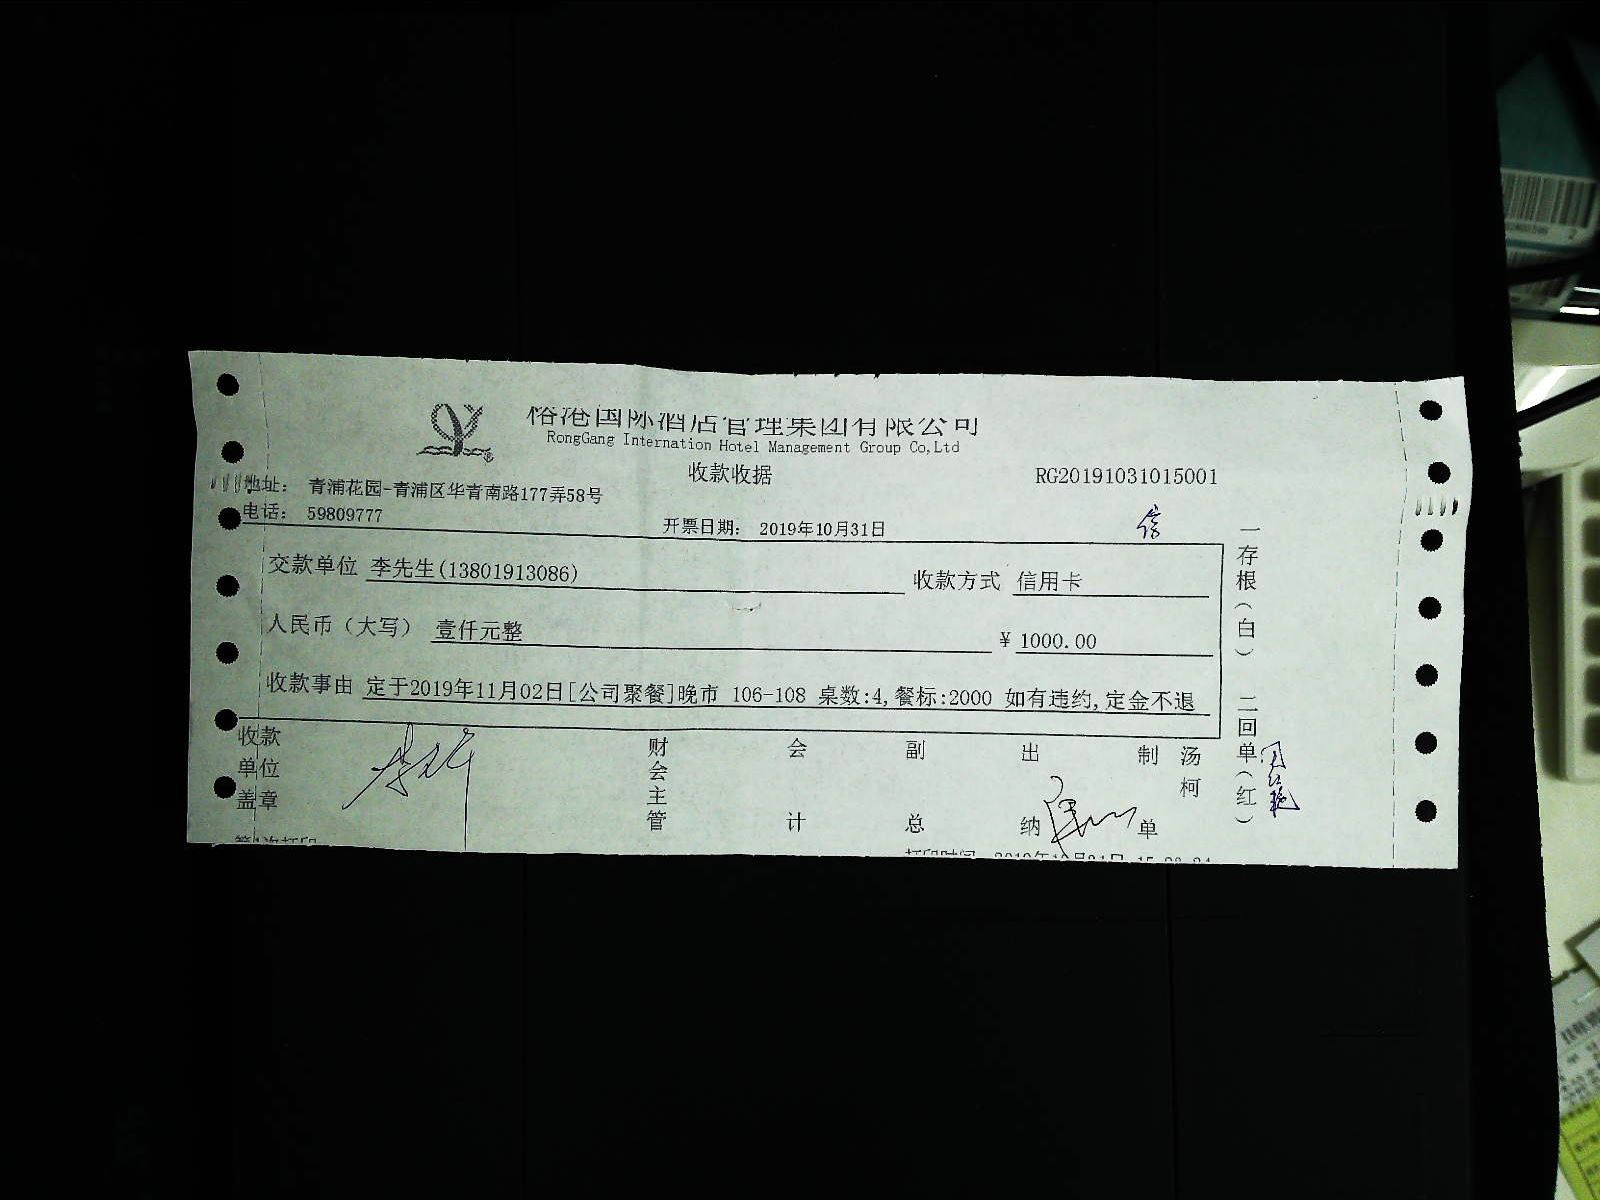 榕港国际酒店管理集团有限公司
RongGang Internation Hotel Management Group Co,Ltd
收款收据 RG20191031015001
地址： 青浦花园-青浦区华青南路177弄58号
电话： 59809777
开票日期： 2019年10月31日
信
交款单位 李先生(13801913086) 收款方式 信用卡
人民币（大写） 壹仟元整 ¥ 1000.00
收款事由 定于2019年11月02日[公司聚餐]晚市 106-108 桌数:4,餐标:2000 如有违约,定金不退
收款单位盖章 财会主管 会计 副总 出纳 制单 汤柯
一存根（白） 二回单（红）